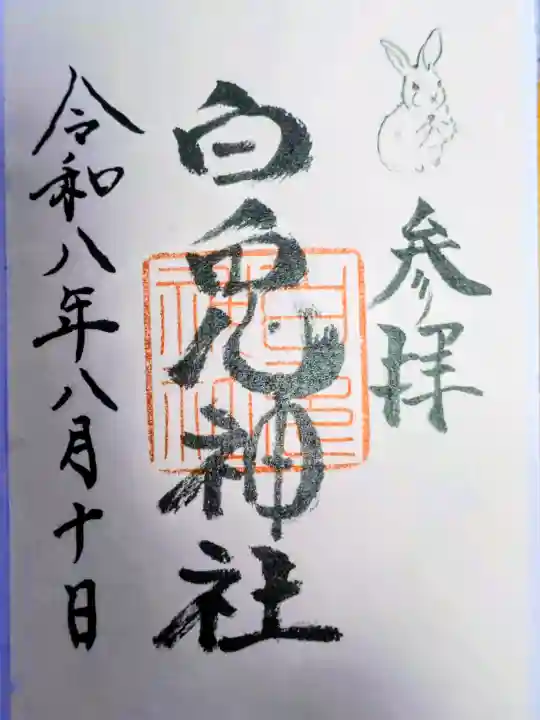 参拝
白兎神社
令和八年八月十日